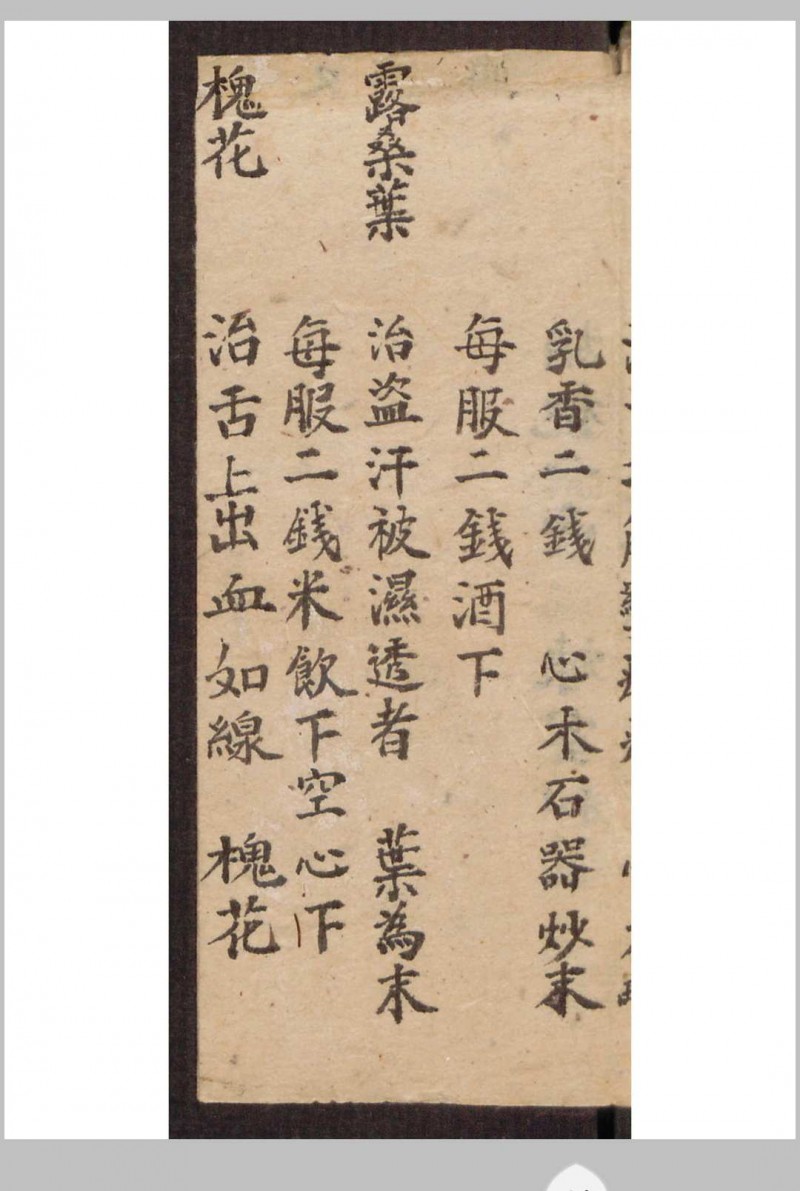 乳香二銭　心木石器炒末
每服二銭酒下
露桑葉　治盗汗被濕透者　葉為末
每服二銭米飲下空心下
槐花　治舌上出血如線　槐花